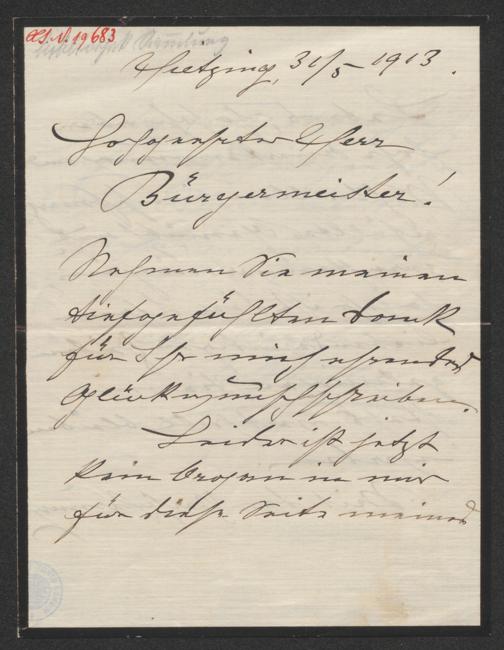 H.I.N. 19683
Hietzing, 31/5 1913.
Hochgeehrter Herr
Bürgermeister!
Nehmen Sie meinen
tiefgefühlten Dank
für Ihr mich ehrendes
Glückwunschschreiben.
Leider ist jetzt
kein Organ in mir
für diese Seite meines